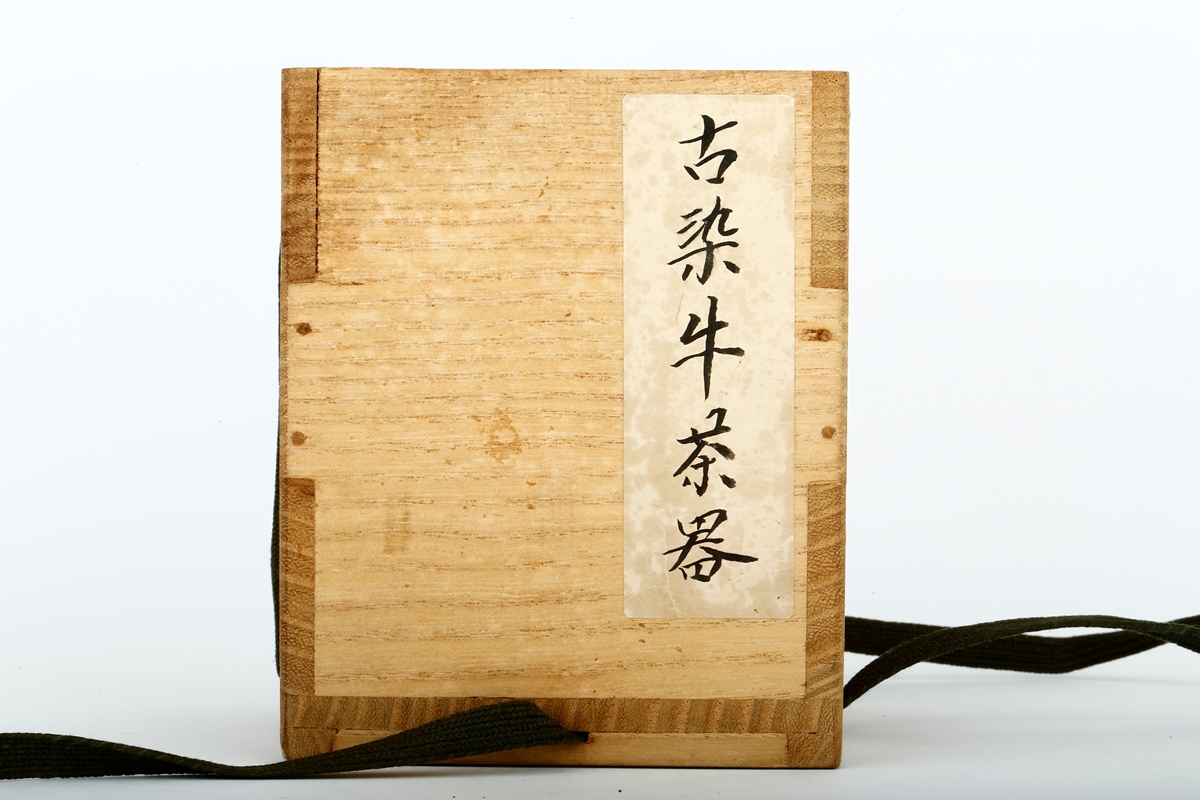 古染牛茶器